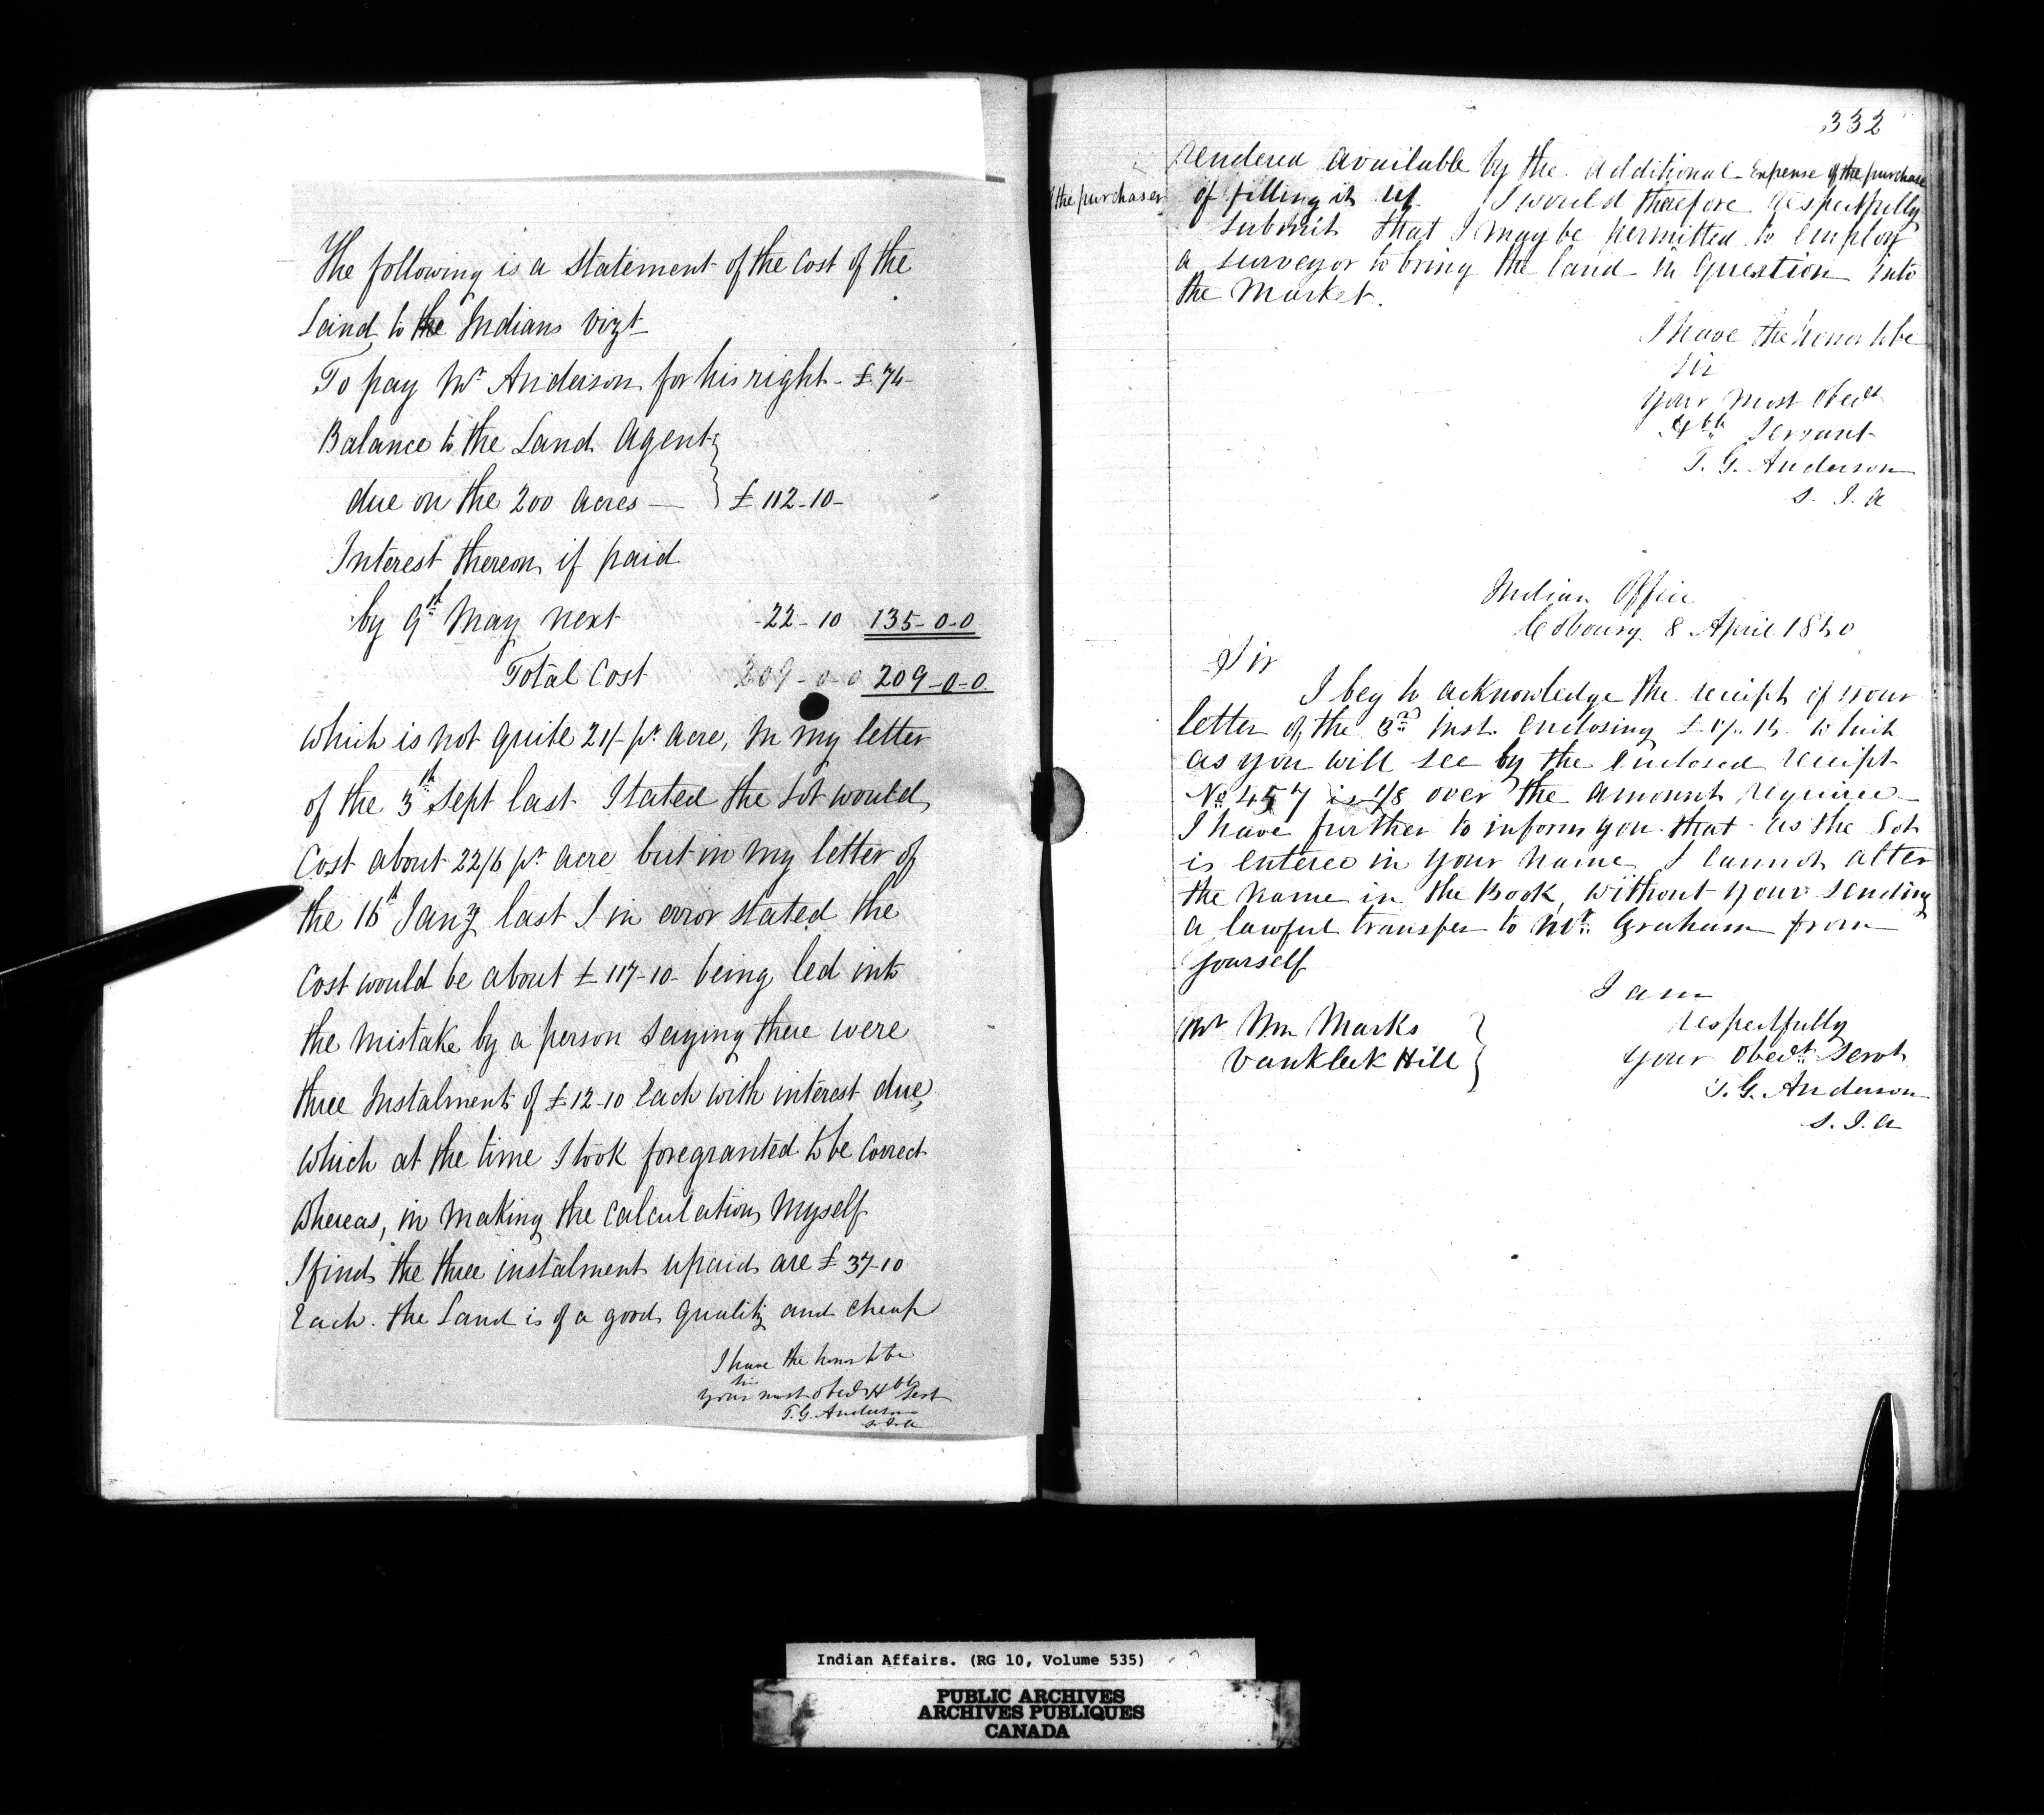 The following is a Statement of the Cost of the
Land to the Indians Vizt
To pay Mr Anderson for his right - £ 74-
Balance to the Land Agent
due on the 200 acres — £ 112-10-
Interest thereon if paid
by 9th May next 22-10 135-0-0
Total Cost 209-0-0 209-0-0
which is not quite 21/- pr acre, In my letter
of the 3th Sept last I stated the Lot would
Cost about 22/6 pr acre but in my letter of
the 16th Jany last I in error stated the
Cost would be about £ 117-10- being led into
the mistake by a person saying there were
three Instalments of £12-10 Each with interest due,
which at the time I took foregranted to be Correct
Whereas, in making the Calculations myself
I find the three instalment upaid are £ 37-10
Each. the Land is of a good quality and cheap
I have the honor to be
Sir
Your most obedt Hble Servt
T. G. Anderson
S. I. A
332
rendered available by the additional Expense of the purchase
of the purchaser of filling it up I would therefore respectfully
submit that I may be permitted to employ
a surveyor to bring the land in Question into
the Market.
I have the honor to be
Sir
Your Most Obedt
Hble Servant
T. G. Anderson
S. I. A
Indian Office
Cobourg 8 April 1850
Sir
I beg to acknowledge the receipt of your
letter of the 3rd Inst. enclosing which
as you will see by the enclosed receipt
No 457 is 1/8 over the amount required
I have further to inform you that as the Lot
is entered in your name I cannot alter
the name in the Book, without your sending
a lawful transfer to Mr. Graham from
yourself
I am
respectfully
Your Obedt Servt
T. G. Anderson
S. I. A
Mr Wm Marks
Vankleek Hill
Indian Affairs. (RG 10, Volume 535)
PUBLIC ARCHIVES
ARCHIVES PUBLIQUES
CANADA